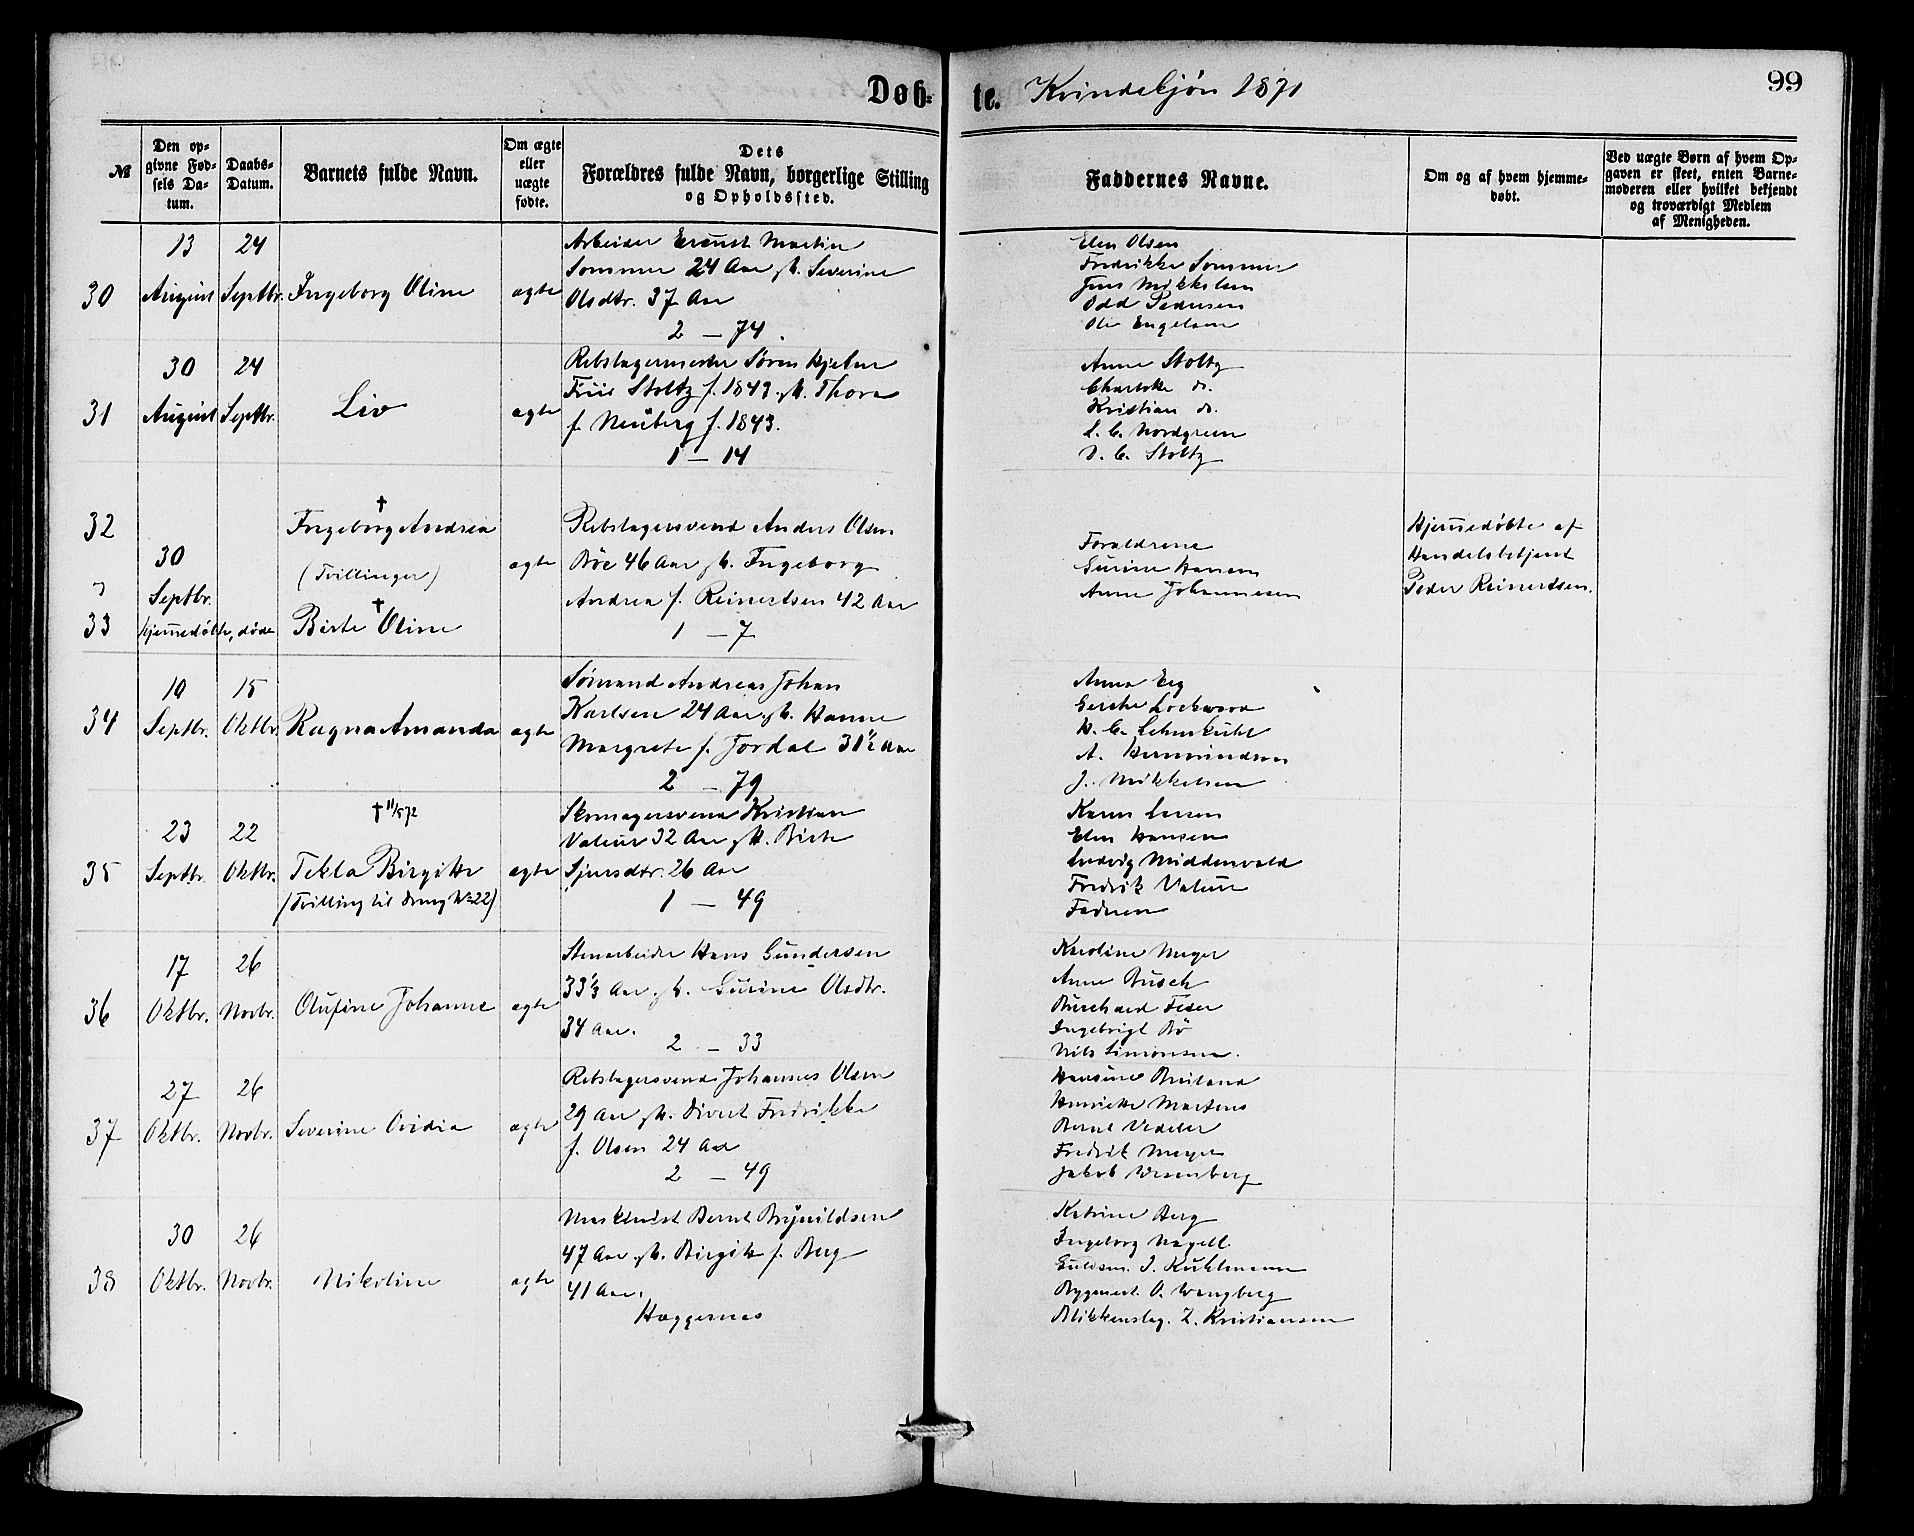 Døb-
te. Kvindekjøn 1871
99
№
Den op-
givne Fød-
sels Da-
tum.
Daabs-
Datum.
Barnets fulde Navn.
Om ægte
eller
uægte
fødte.
Dets
Forældres fulde Navn, borgerlige Stilling
og Opholdssted.
Faddernes Navne.
Om og af hvem hjemme-
døbt.
Ved uægte Børn af hvem Op-
gaven er skeet, enten Barne-
moderen eller hvilket bekjendt
og troværdigt Medlem
af Menigheden.
30
13
August
24
Septbr.
Ingeborg Oline
ægte
Arbeider Ernst Martin
Sommer 24 Aar g. Severine
Olsdtr. 37 Aar
2 – 74.
Elen Olsen
Fredrikke Sommer
Jens Mikkelsen
Odd Pedersen
Ole Engelsen
31
30
August
24
Septbr.
Liv
ægte
Rebslagermester Søren Hjelm
Friis Stoltz f. 1849 g. Thora
f. Neuberg f. 1843.
1 – 14
Anna Stoltz
Charlotte do.
Kristian do.
L. C. Nordgreen
D. C. Stoltz
32
33
30
Septbr.
Hjemmedøbte, døde
†
Ingeborg Andrea
(Tvillinger)
†
Birte Oline
ægte
Rebslagersvend Anders Olsen
Bøe 46 Aar g. Ingeborg
Andrea f. Reinertsen 42 Aar
1 – 7
Forældrene
Gurine Hansen
Anne Johannesen
Hjemmedøbte af
Handelsbetjent
Peder Reinertsen.
34
10
Septbr.
15
Oktbr.
Ragna Amanda
ægte
Sømand Andreas Johan
Karlsen 24 Aar g. Hanne
Margrete f. Jordal 31½ Aar
2 – 79
Anna Eeg
Gerche Lockwood
H. C. Lehmkuhl
A. Hermundsen
J. Mikkelsen
35
23
Septbr.
22
Oktbr.
† 11/5 72
Tekla Birgitte
(Tvilling til Dreng No 22)
ægte
Skomagersvend Kristian
Valeur 32 Aar g. Birte
Sjursdtr. 26 Aar
1 – 49
Karen Larsen
Elen Hansen
Ludvig Middenvald
Fredrik Valeur
Faderen
36
17
Oktbr.
26
Novbr.
Olufine Johanne
ægte
Stenarbeider Hans Gundersen
33⅓ Aar g. Gurine Olsdtr.
34 Aar.
2 – 33
Karoline Meyer
Anne Busch
Burchard Feser
Ingebrigt Bø
Nils Simonsen.
37
27
Oktbr.
26
Novbr.
Severine Ovidia
ægte
Rebslagersvend Johannes Olsen
29 Aar g. Sivert Fredrikke
f. Olsen 24 Aar
2 – 49
Hansine Breiland
Henriette Martens
Bernt Vedeler
Fredrik Meyer
Jakob Wesenberg
38
30
Oktbr.
26
Novbr.
Nikoline
ægte
Maskinist Bernt Brynildsen
47 Aar g. Birgitte f. Berg
41 Aar.
Hæggernæs
Katrine Berg
Ingeborg Nagell
Guldsm. J. Kuhlmann
Byggmest. O. Wangberg
Blikkenslag. Z. Kristiansen